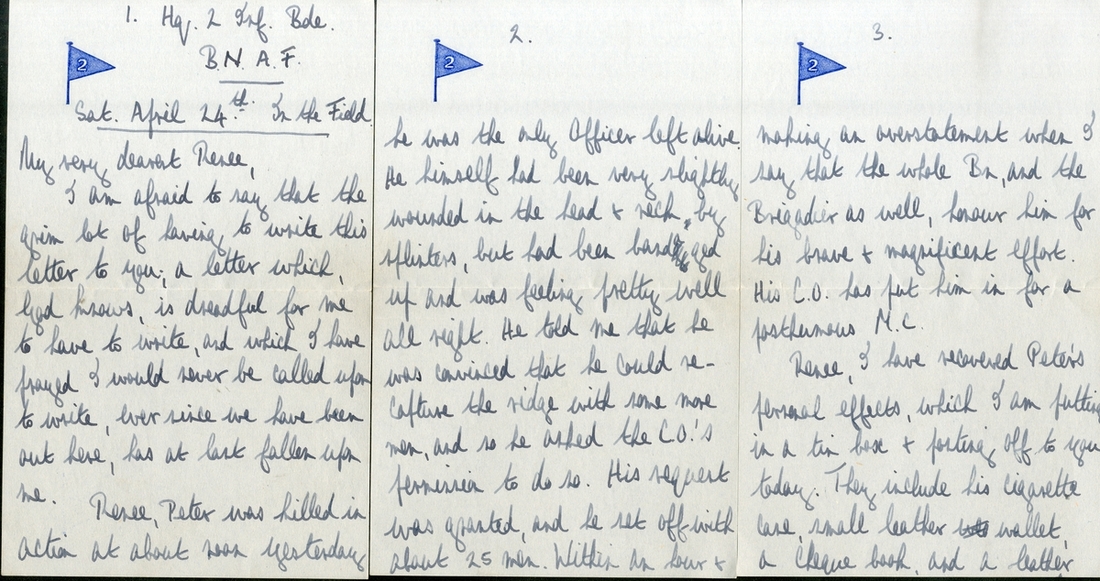 1. Hq. 2 Inf. Bde.
2
B N A.F.
Sat. April 24th. In the Field.
My very dearest Renee,
I am afraid to say that the
grim lot of having to write this
letter to you; a letter which,
God knows, is dreadful for me
to have to write, and which I have
prayed I would never be called upon
to write, ever since we have been
out here, has at last fallen upon
me.
Renee, Peter was killed in
action at about noon yesterday
2.
2
he was the only Officer left alive.
He himself had been very slightly
wounded in the head & neck, by
splinters, but had been bandaged
up and was feeling pretty well
all right. He told me that he
was convinced that he could re-
capture the ridge with some more
men, and so he asked the C.O.'s
permission to do so. His request
was granted, and he set off with
about 25 men. Within an hour &
3.
2
making an overstatement when I
say that the whole Bn, and the
Brigadier as well, honour him for
his brave & magnificent effort.
His C.O. has put him in for a
posthumous M.C.
Renee, I have recovered Peter's
personal effects, which I am putting
in a tin box & posting off to you
today. They include his cigarette
case, small leather wallet,
a cheque book, and a leather